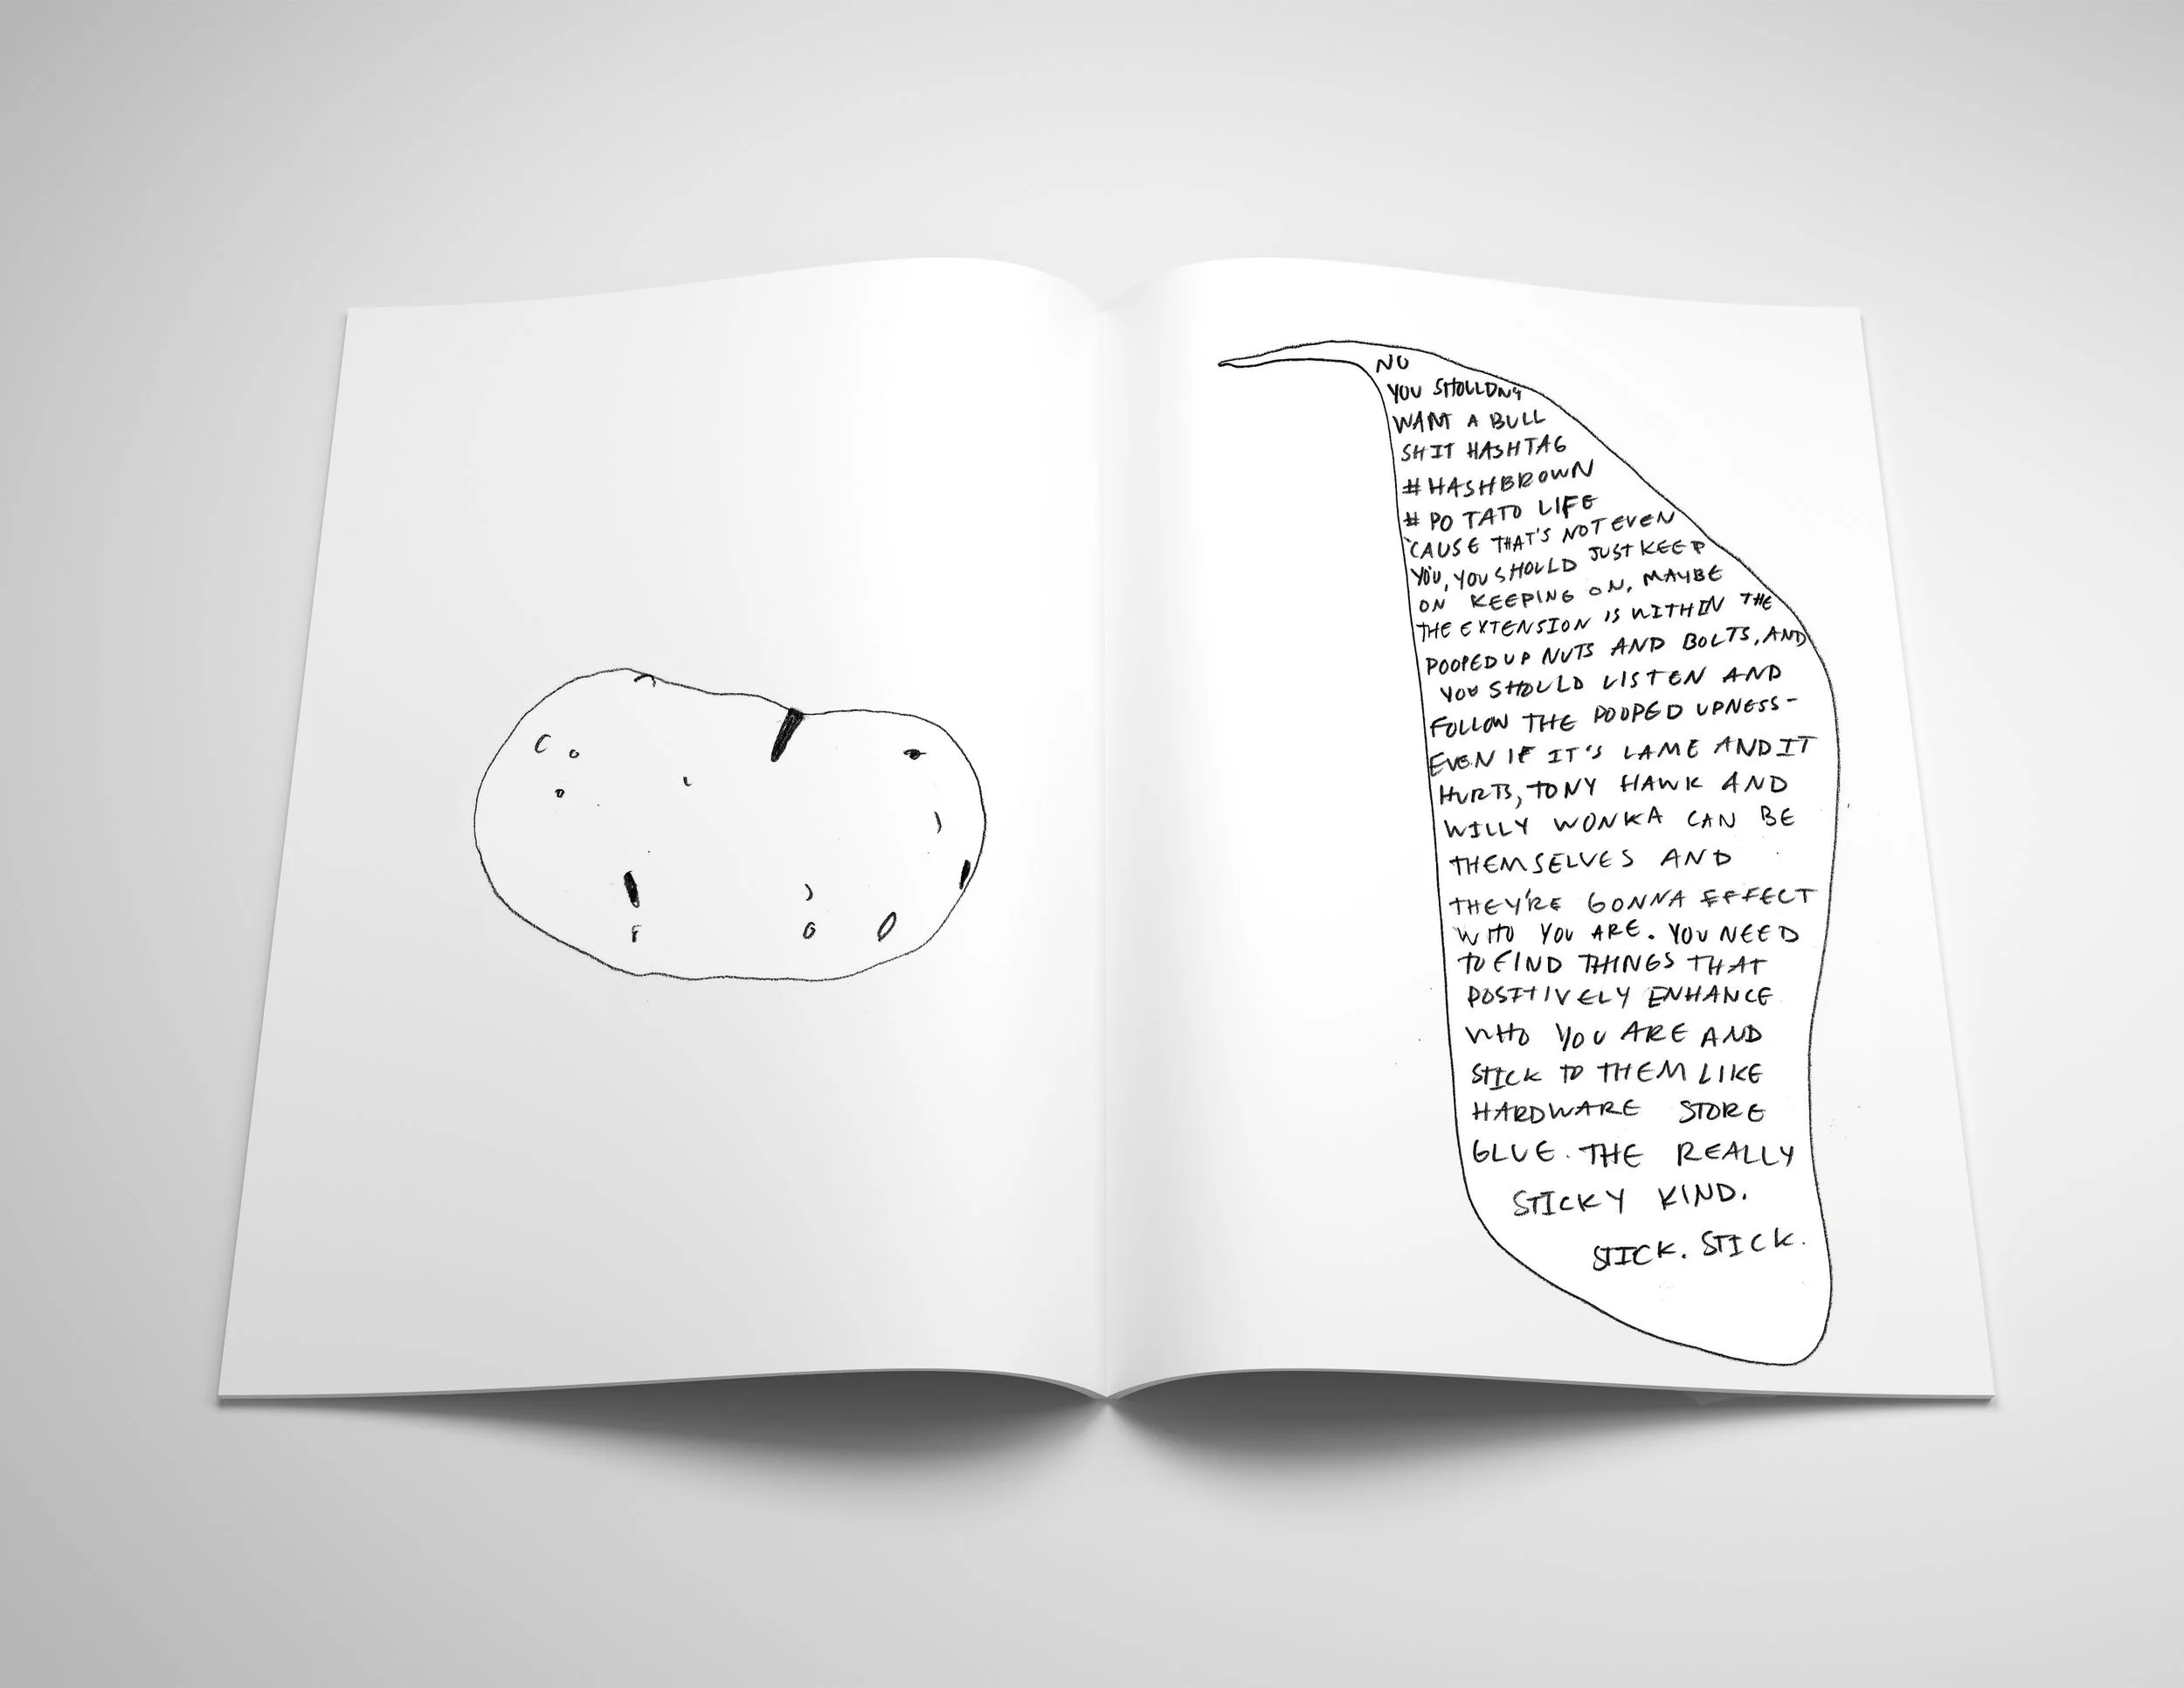 NO
YOU SHOULDN'T
WANT A BULL
SHIT HASHTAG
#HASHBROWN
#PO TATO LIFE
'CAUSE THAT'S NOT EVEN
YOU, YOU SHOULD JUST KEEP
ON KEEPING ON. MAYBE
THE EXTENSION IS WITHIN THE
POOPED UP NUTS AND BOLTS, AND
YOU SHOULD LISTEN AND
FOLLOW THE POOPED UPNESS-
EVEN IF IT'S LAME AND IT
HURTS, TONY HAWK AND
WILLY WONKA CAN BE
THEMSELVES AND
THEY'RE GONNA EFFECT
WHO YOU ARE. YOU NEED
TO FIND THINGS THAT
POSITIVELY ENHANCE
WHO YOU ARE AND
STICK TO THEM LIKE
HARDWARE STORE
GLUE. THE REALLY
STICKY KIND.
STICK. STICK.